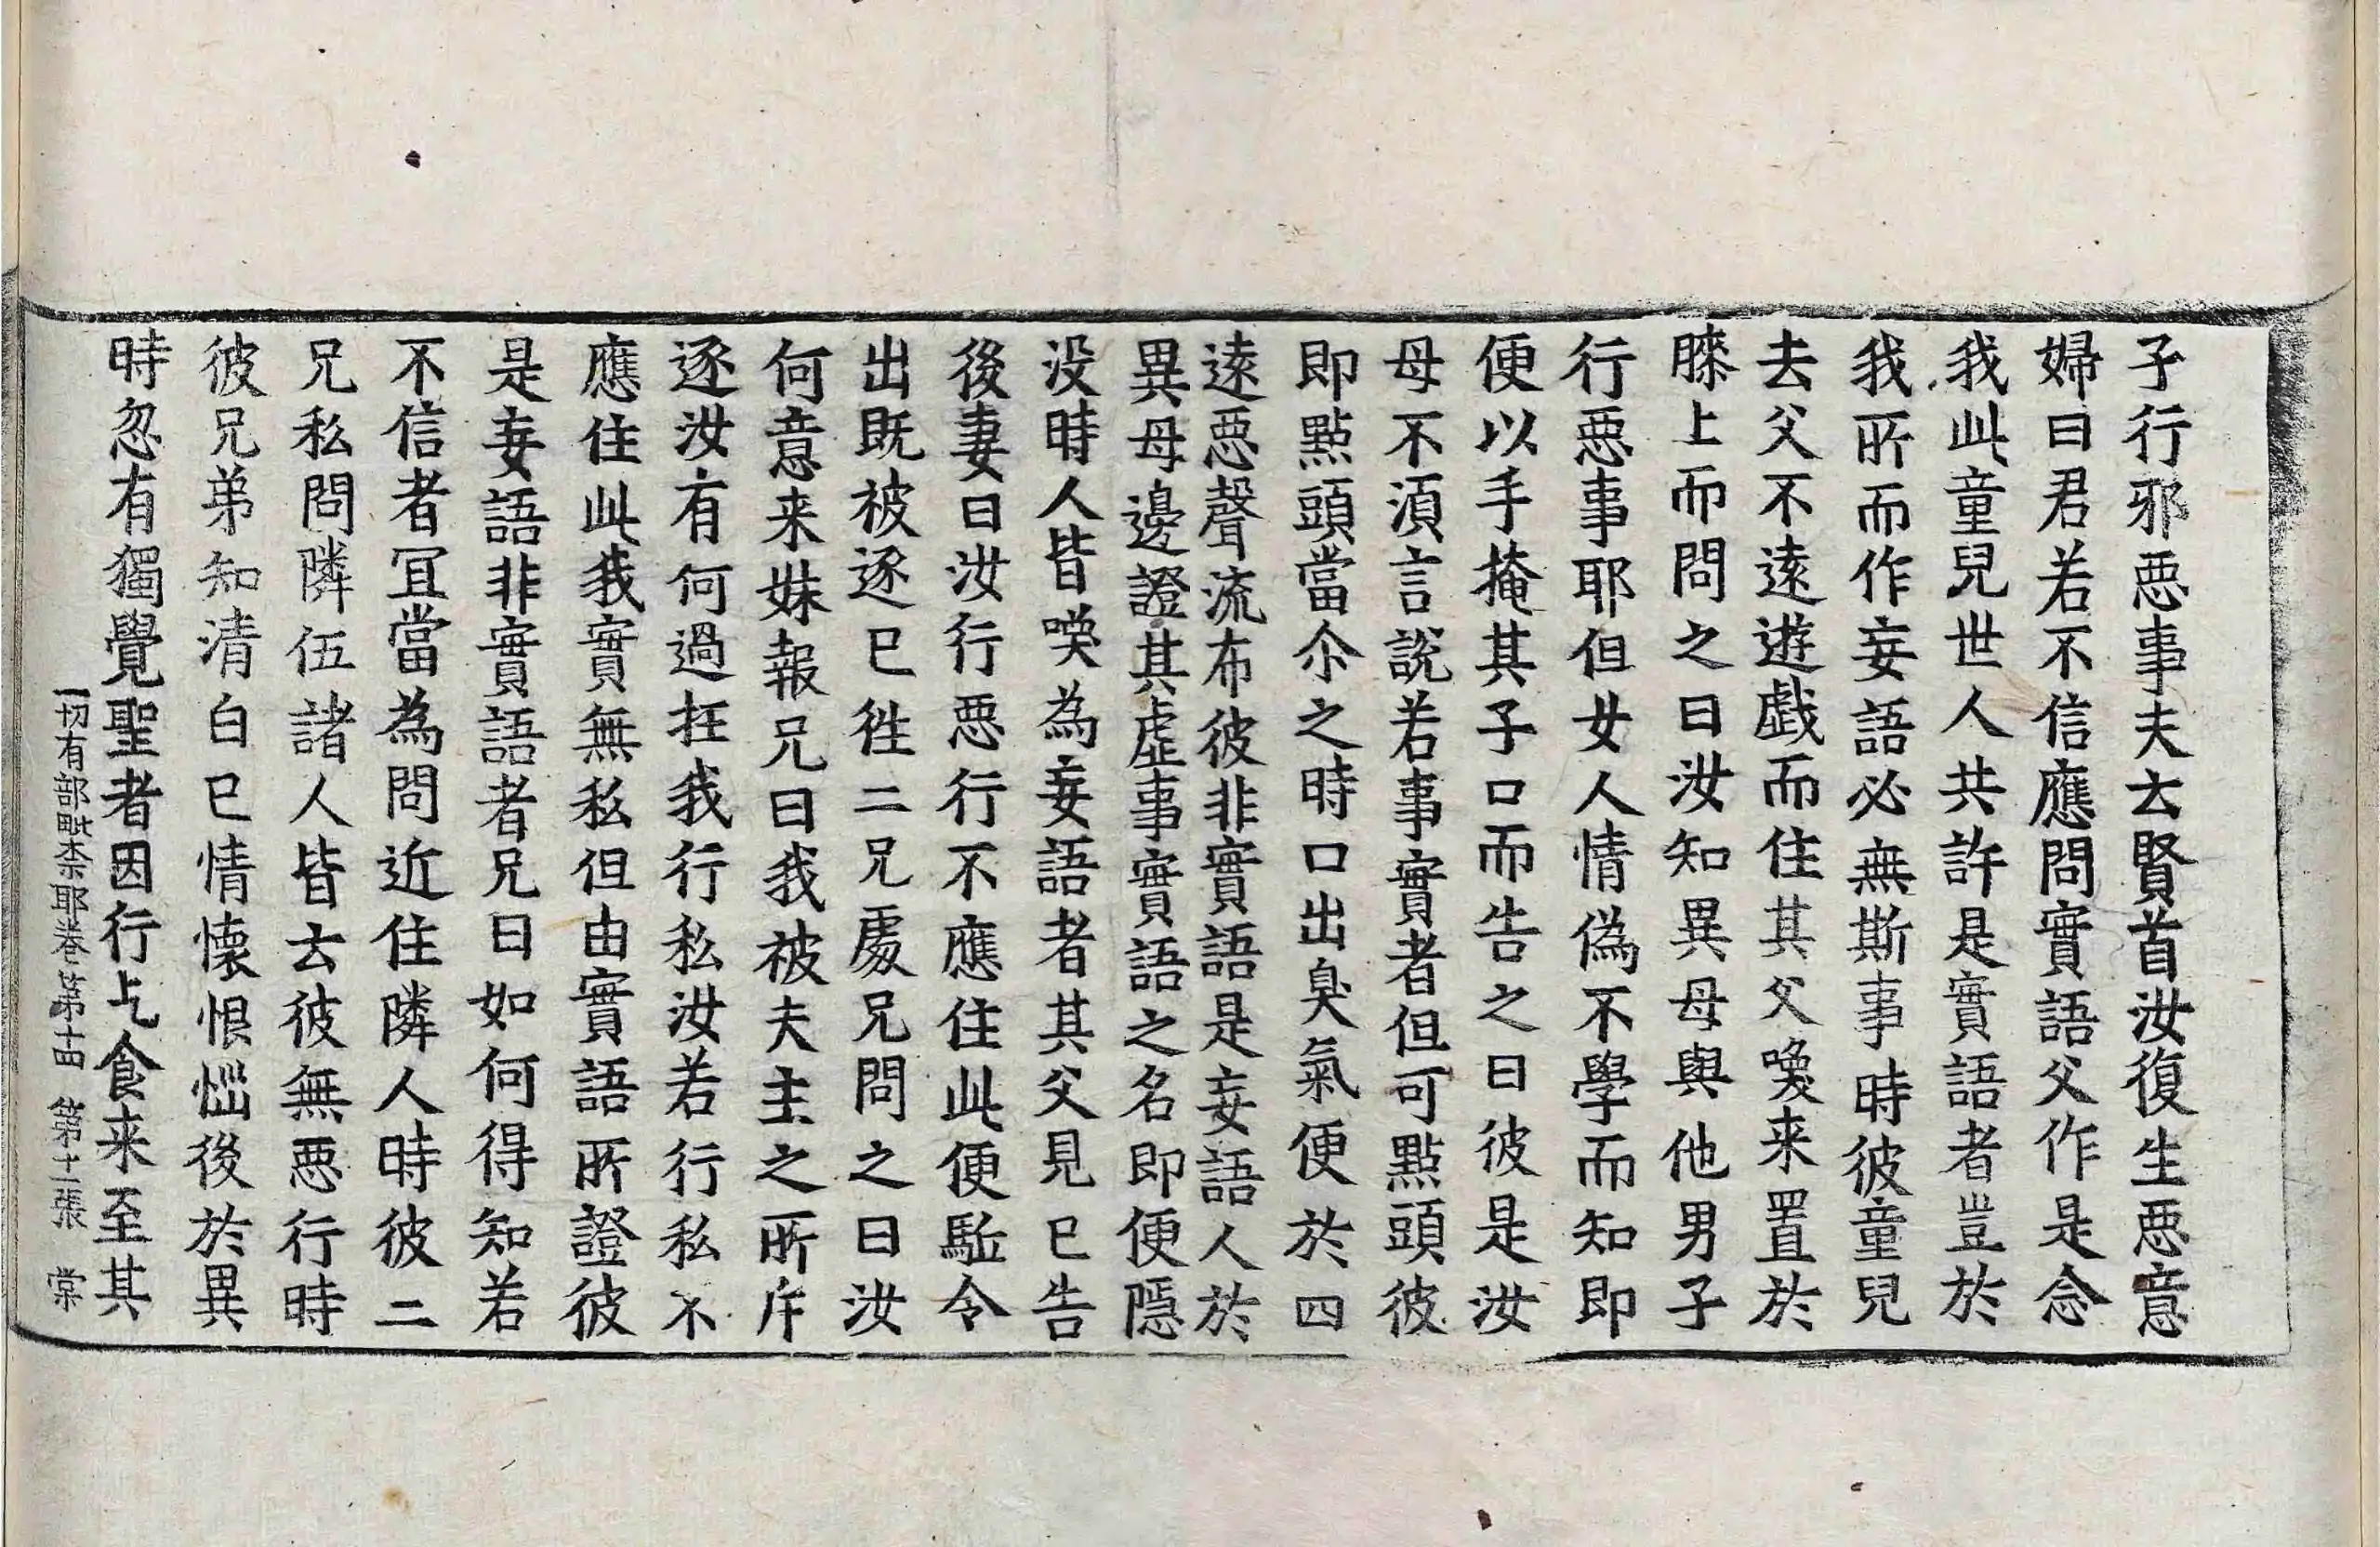 子行邪惡事夫去賢首汝復生惡意
婦曰君若不信應問實語父作是念
我此童兒世人共許是實語者豈於
我所而作妄語必無斯事時彼童兒
去父不遠遊戲而住其父喚来置於
膝上而問之曰汝知異母與他男子
行惡事耶但女人情偽不學而知即
便以手掩其子口而告之曰彼是汝
母不湏言說若事實者但可點頭彼
即點頭當尒之時口出臭氣便於四
遠惡聲流布彼非實語是妄語人於
異母邊證其虛事實語之名即便隱
没時人皆喚為妄語者其父見已告
後妻曰汝行惡行不應住此便駈令
出既被逐已徃二兄處兄問之曰汝
何意来妹報兄曰我被夫主之所斥
逐汝有何過抂我行私汝若行私不
應住此我實無私但由實語所證彼
是妄語非實語者兄曰如何得知若
不信者冝當為問近住隣人時彼二
兄私問隣伍諸人皆云彼無惡行時
彼兄弟知清白已情懷恨惱後於異
時忽有獨覺聖者因行乞食来至其
一切有部毗奈耶卷第十四 第十二張 棠